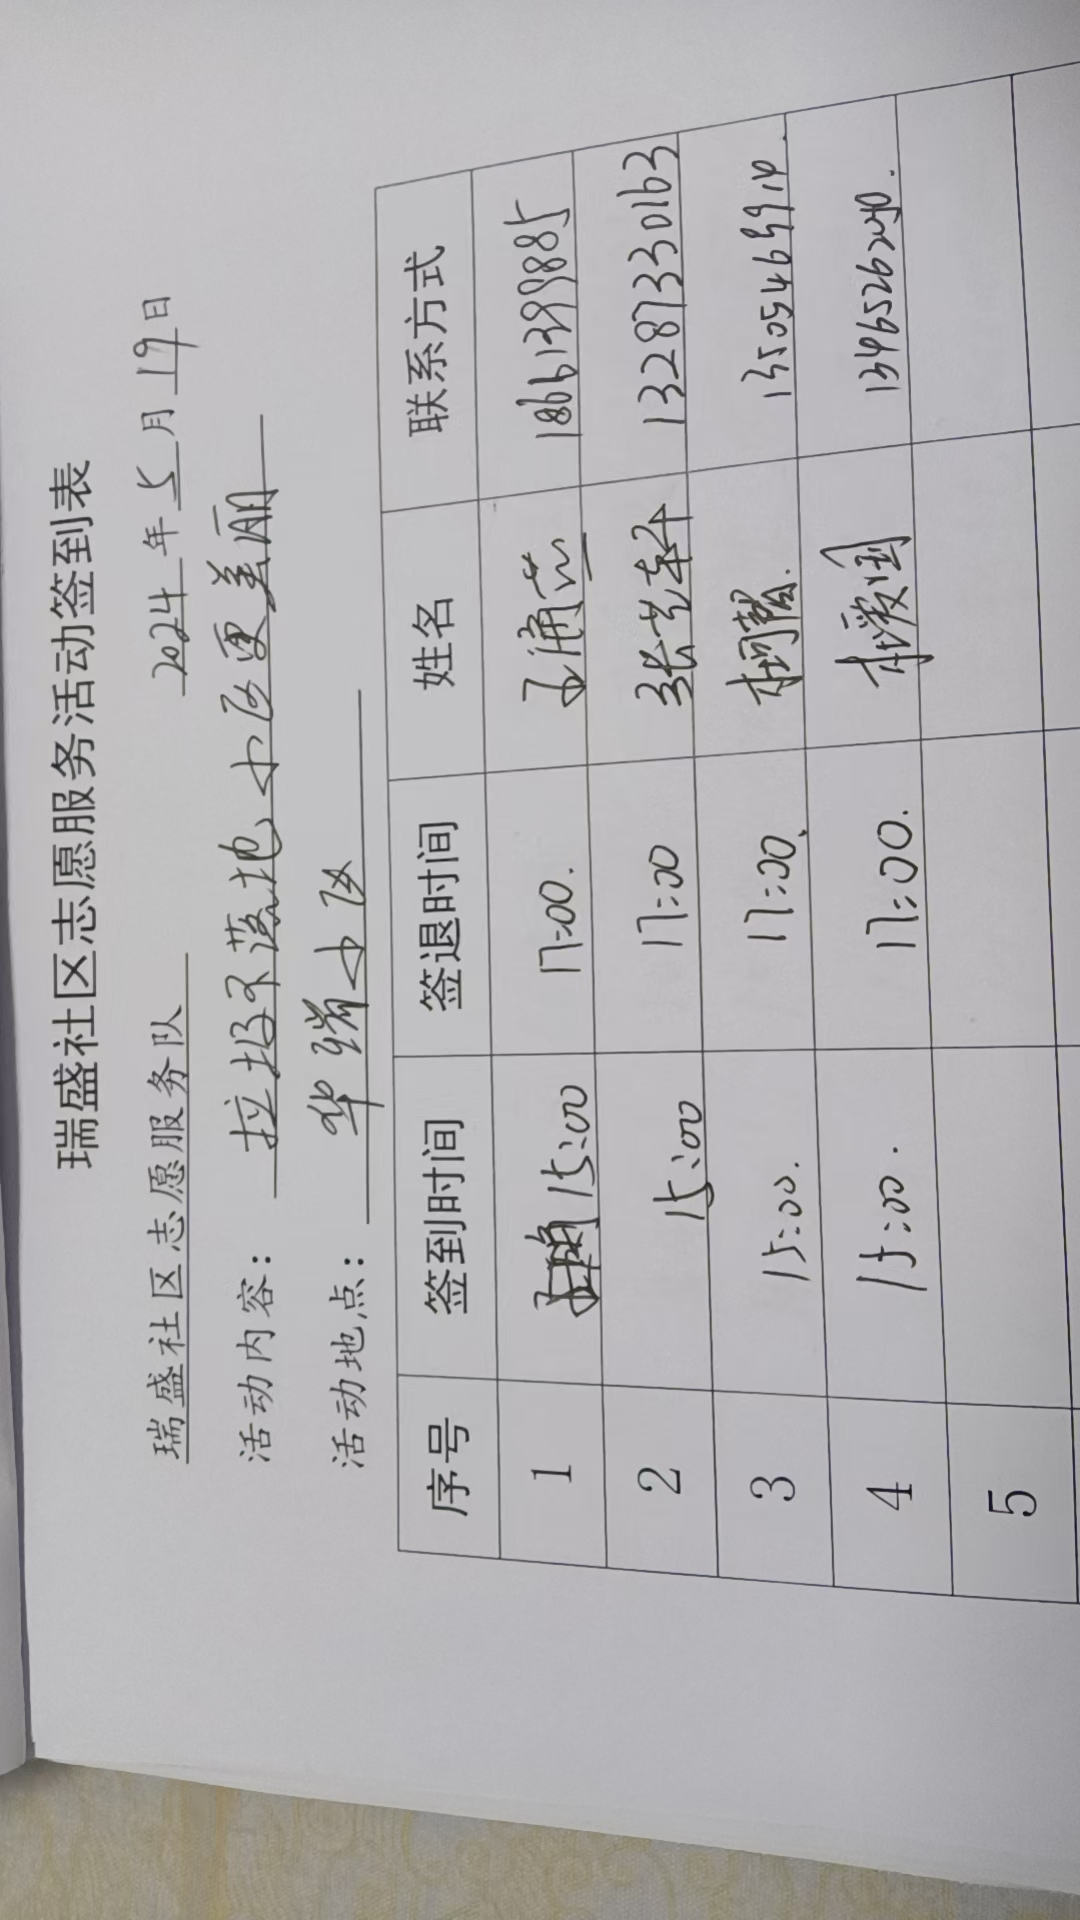 瑞盛社区志愿服务活动签到表
瑞盛社区志愿服务队 2024年5月19日
活动内容：垃圾不落地 小区更美丽
活动地点：华瑞小区
序号 签到时间 签退时间 姓名 联系方式
1 15:00 17:00. 18661399885
2 15:00 17:00 13287330163
3 15:00. 17:00.
4 15:00. 17:00.
5